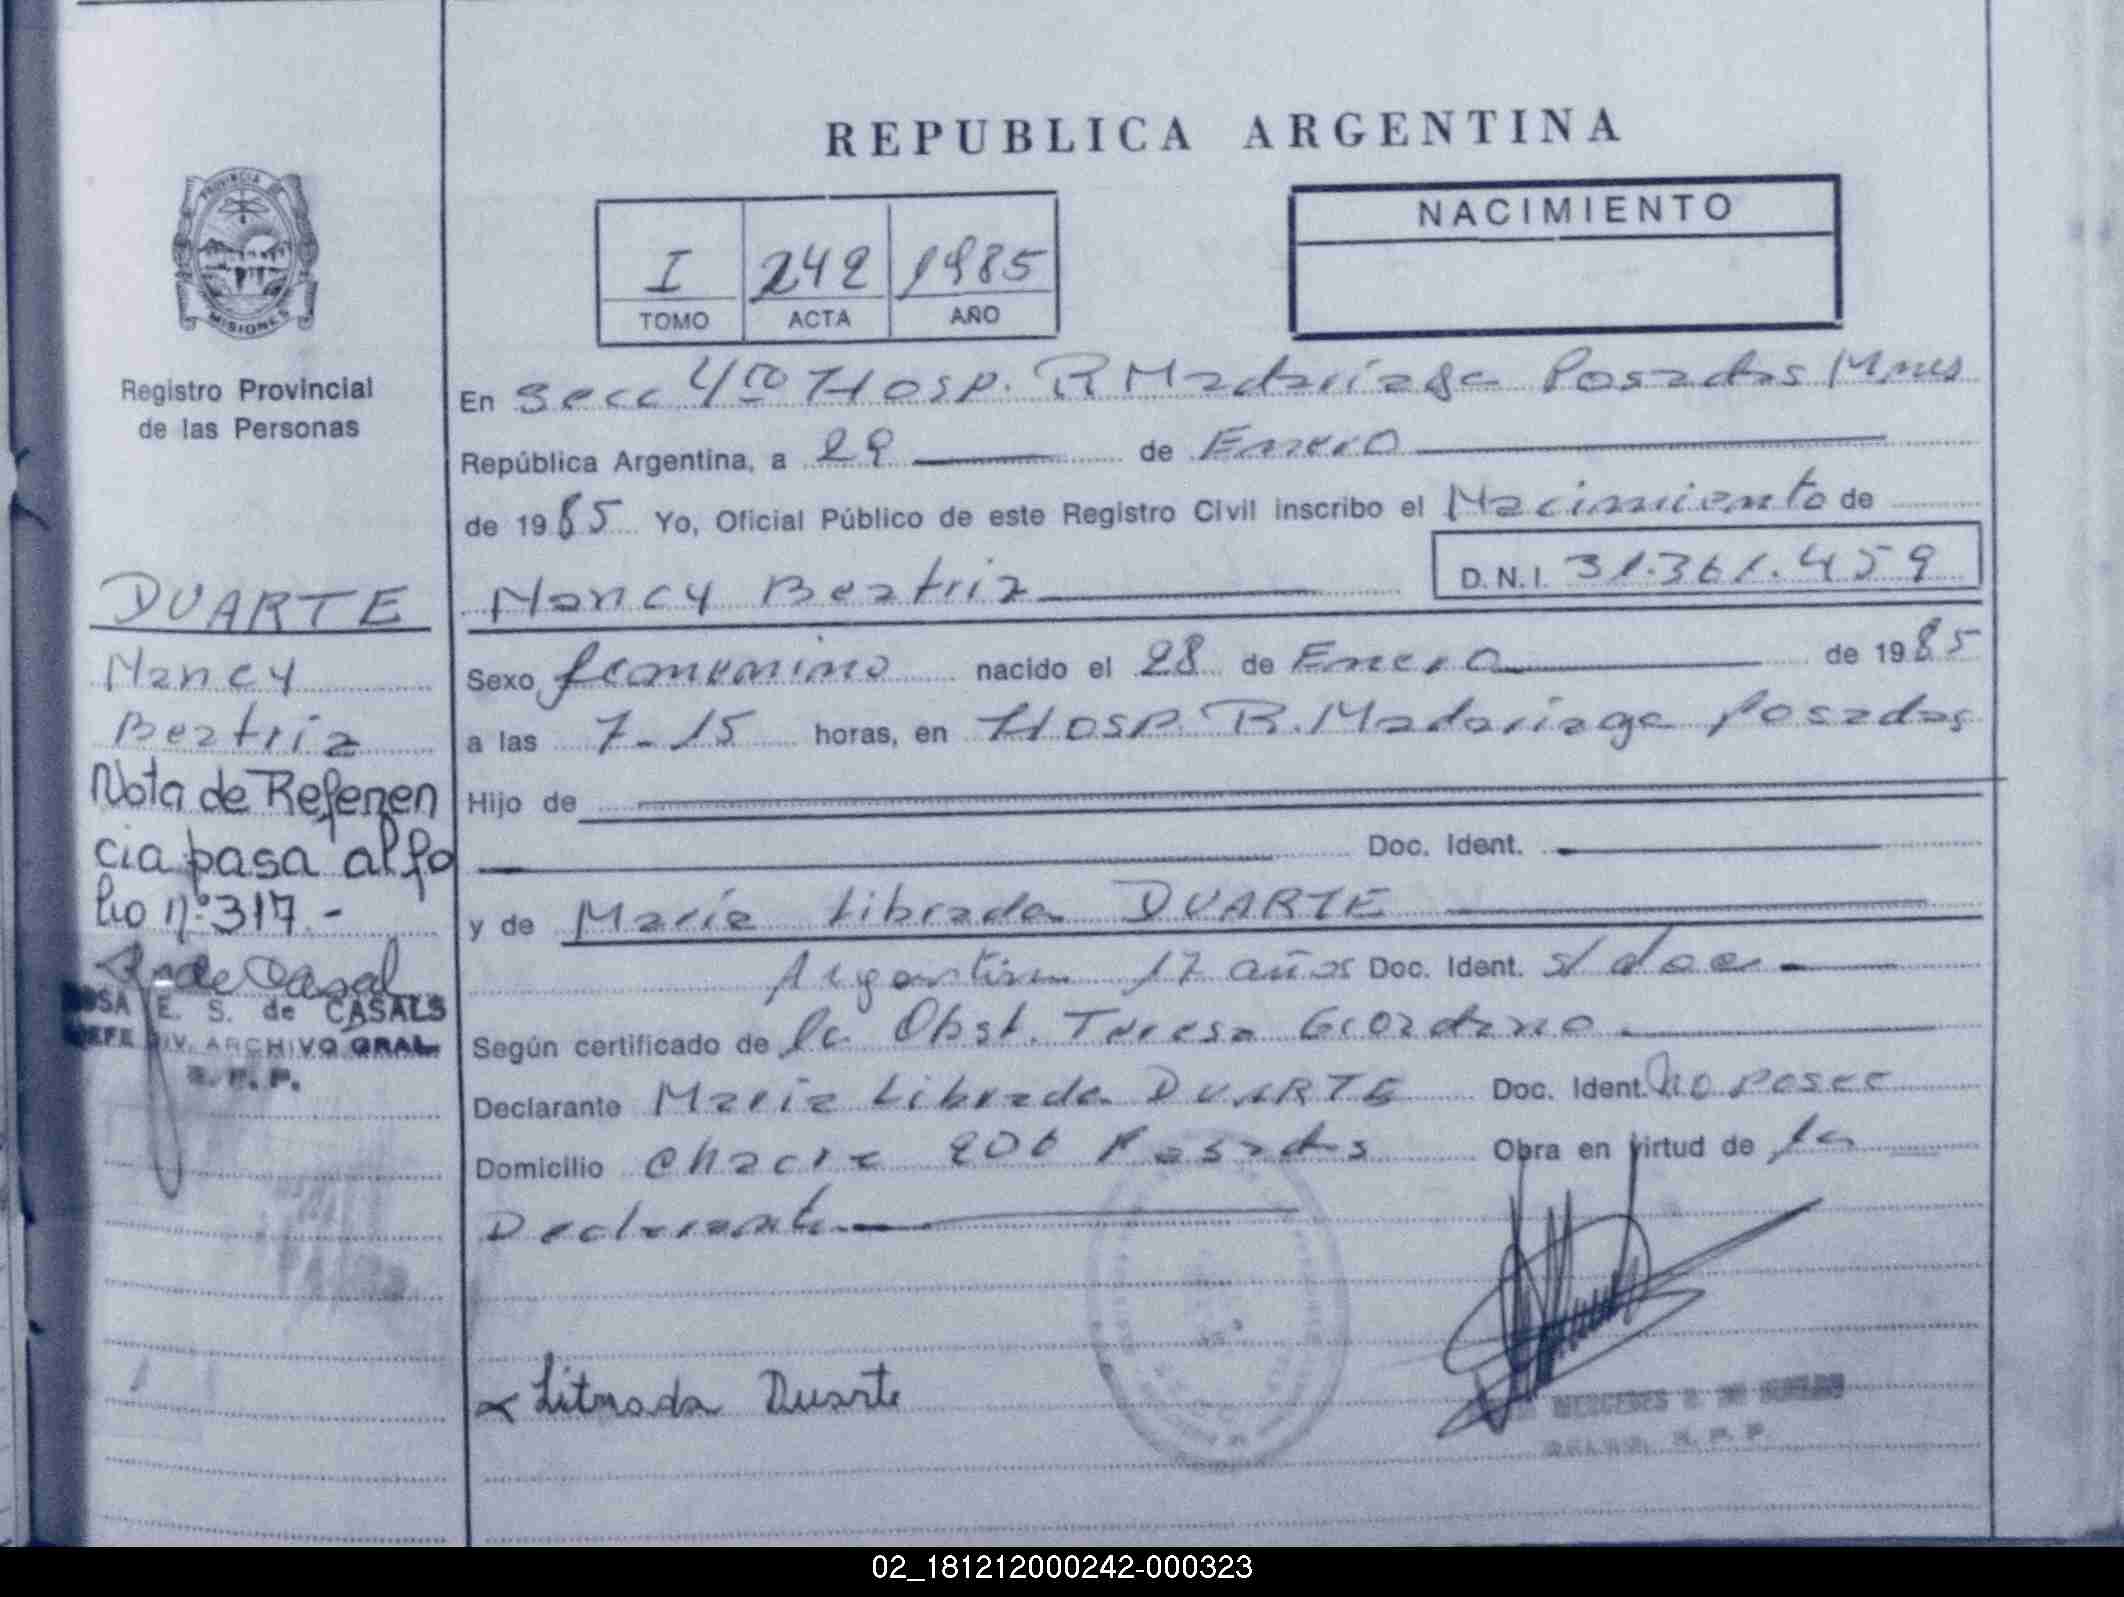 REPUBLICA ARGENTINA
PROVINCIA DE
MISIONES
Registro Provincial
de las Personas
I 242 1985
TOMO ACTA AÑO
NACIMIENTO
En Secc 4ta Hosp. R Madariaga Posadas Mnes
República Argentina, a 29 de Enero
de 1985 Yo, Oficial Público de este Registro Civil inscribo el Nacimiento de
Nancy Beatriz D.N.I. 31.361.459
Sexo femenino nacido el 28 de Enero de 1985
a las 7-15 horas, en Hosp. R. Madariaga Posadas
Hijo de
Doc. Ident.
y de María Librada DUARTE
Argentina 17 años Doc. Ident. s/ doc
Según certificado de la Obst. Teresa Giordano
Declarante María Librada DUARTE Doc. Ident. no posee
Domicilio Chacra 206 Posadas Obra en virtud de la
Declarante
Litrada Duarte
MERCEDES
R. P. P.
DUARTE
Nancy
Beatriz
Nota de Referen
cia pasa al fo
lio nº 317.-
R. de Casal
ROSA E. S. de CASALS
JEFE DIV. ARCHIVO GRAL.
R. P. P.
02_181212000242-000323